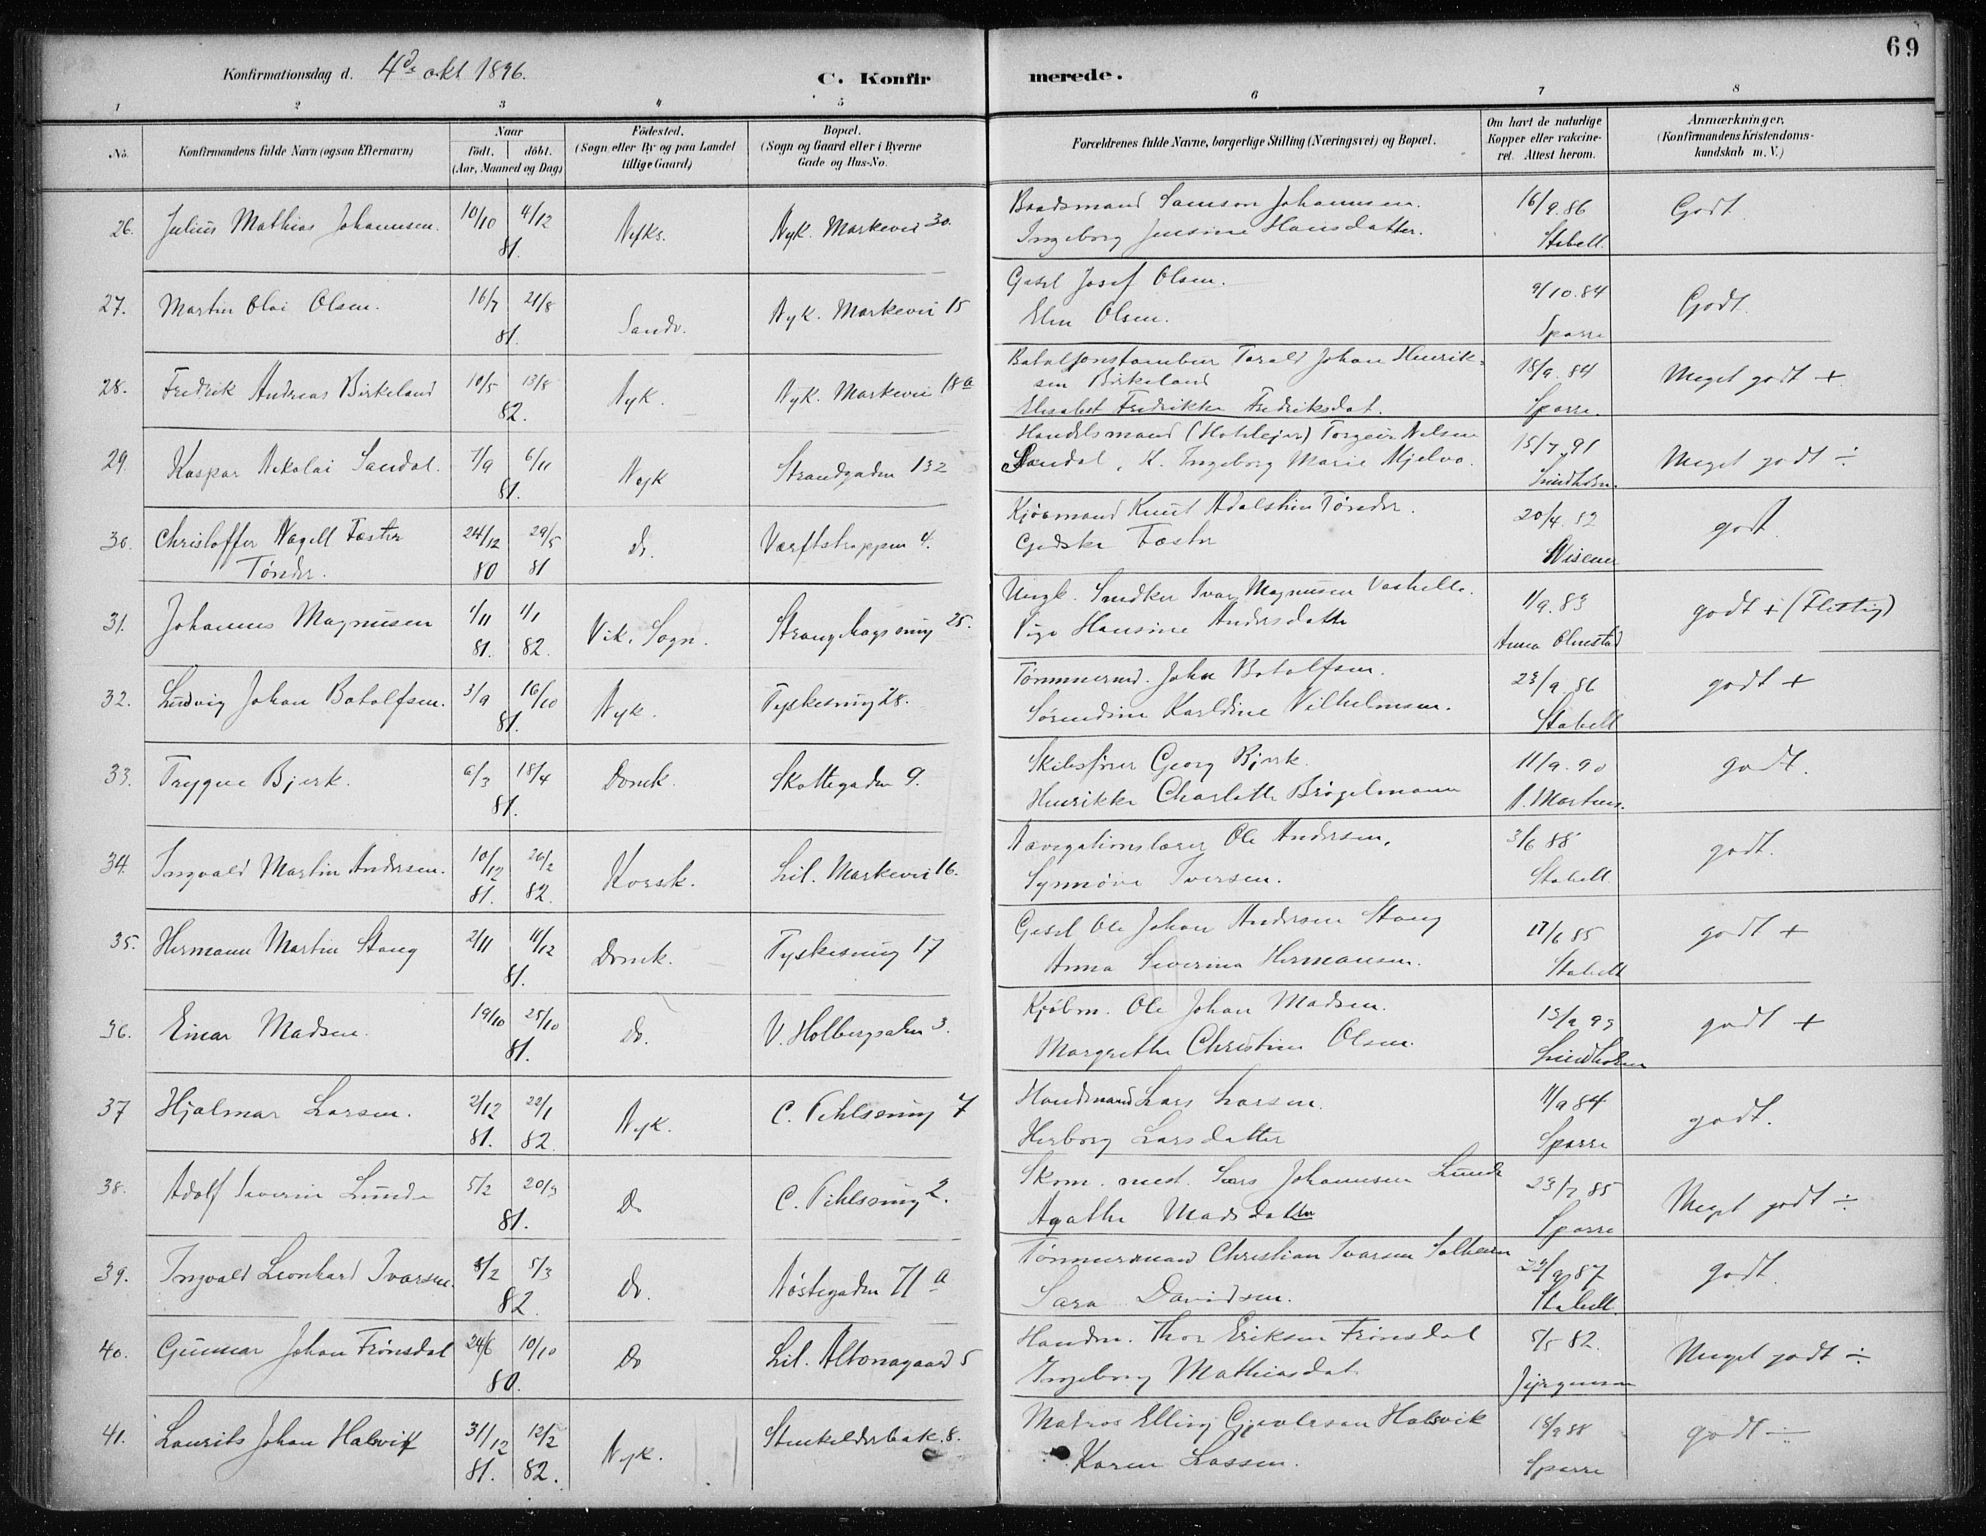 69
Konfirmationsdag d. 4de okt 1896.
C. Konfirmerede.
1 2 3 4 5 6 7 8
No.
Konfirmandens fulde Navn (ogsaa Efternavn)
Naar
Födt. döbt.
(Aar, Maaned og Dag)
Födested.
(Sogn eller By og paa Landet
tillige Gaard)
Bopæl.
(Sogn og Gaard eller i Byerne
Gade og Hus-No.
Forældrenes fulde Navne, borgerlige Stilling (Næringsvei) og Bopæl.
Om havt de naturlige
Kopper eller vakcine-
ret. Attest herom.
Anmærkninger.
(Konfirmandens Kristendoms-
kundskab m. V.)
26. Julius Mathias Johannsen. 10/10 4/12 81. Nyks. Nyk. Markevei 30.
Baadsmand Samson Johannsen.
Ingeborg Jensine Hansdatter.
16/9.86 Stabell. Godt
27. Martin Olai Olsen. 16/7 21/8 81. Sandv. Nyk. Markevei 15
Gesel Josef Olsen.
Elen Olsen.
9/10.84 Sparre Godt.
28. Fredrik Andreas Birkeland 10/5 13/8 82. Nyk. Nyk. Markevei 18a
Bataljonstambur Torald Johan Henrik-
sen Birkeland
Elisabet Fredrikke Fredriksdat.
18/9.84 Sparre. Meget godt +
29. Kaspar Nikolai Sandal. 7/9 6/11 81. Nyk Strandgaden 132
Handelsmand Torgeir Nilsen
Sandal, H. Ingeborg Marie Mjelvo.
15/7.91 Lindholm. Meget godt ÷
30. Christoffer Nagell Fæster
Tønder. 24/12 80 29/5 81 do. Værftstrappen 4.
Kjøbmand Knut Adalstein Tønder.
Gjedske Fæster
20/4.82 Wisener godt
31. Johannes Magnusen 1/11 81. 1/1 82. Vik. Sogn. Strangehagsmug 25.
Ungk. Snedker Ivar Magnusen
Hansine Andersdatter
1/9.83 Anna Olmstad godt + (Flittig)
32. Ludvig Johan Botolfsen. 3/9 16/10 81. Nyk. Tyskesmug 28.
Tømmermd. John Botolfsen.
Sørendine Karldine Vilhelmsen.
23/9.86 Stabell godt +
33. Trygve Bjerk. 6/3 18/4 81. Domk. Skottegaden 9.
Skibsfører Georg Bjerk.
Henrikke Charlotte Brögelmann
11/9.90 A. Martens. godt.
34. Ingvald Martin Andersen. 10/12 81. 26/2 82. Korsk. Lil. Markevei 16.
Navigationslærer Ole Andersen.
Synnøve Iversen.
3/6 88 Stabell godt.
35. Hermann Martin Stang 2/11 11/12 81. Domk. Tyskesmug 17
Gesel Ole Johan Andersen Stang
Anna Severina Hermansen.
17/6 85 Stabell godt +
36. Einar Madsen. 19/10 25/10 81. Do. V. Holbergsalm 3.
Kjøbm. Ole Johan Madsen.
Margrethe Christine Olsen.
13/9 93 Lindholm godt +
37 Hjalmar Larsen. 2/12 81. 22/1 82. Nyk. C. Pihlsmug 7
Handsmand Lars Larsen.
Herborg Larsdatter
11/9 84 Sparre godt.
38. Adolf Severin Lunde 5/2 20/3 81. Do C. Pihlsmug 2.
Skom. mest. Lars Johannsen Lunde
Agathe Madsdatter
23/7 85 Sparre Meget godt ÷
39. Ingvald Leonhard Ivarsen. 8/2 5/3 82. Do. Nøstegaden 71a
Tømmermand Christian Ivarsen Solheim
Sara Davidsen.
22/9 87 Stabell godt.
40. Gunnar Johan Frønsdal 24/6 10/10 80. Do Lil. Altonagaard 5
Handm. Thor Eriksen Frønsdal
Ingeborg Mathiasdat.
5/5 82. Jørgensen Meget godt ÷
41. Laurits Johan Halsvik 31/12 81. 12/2 82. Nyk. Stenkelderbak. 8.
Matros Elling Halsvik
Karen Lassen.
18/9 88 Sparre godt ÷